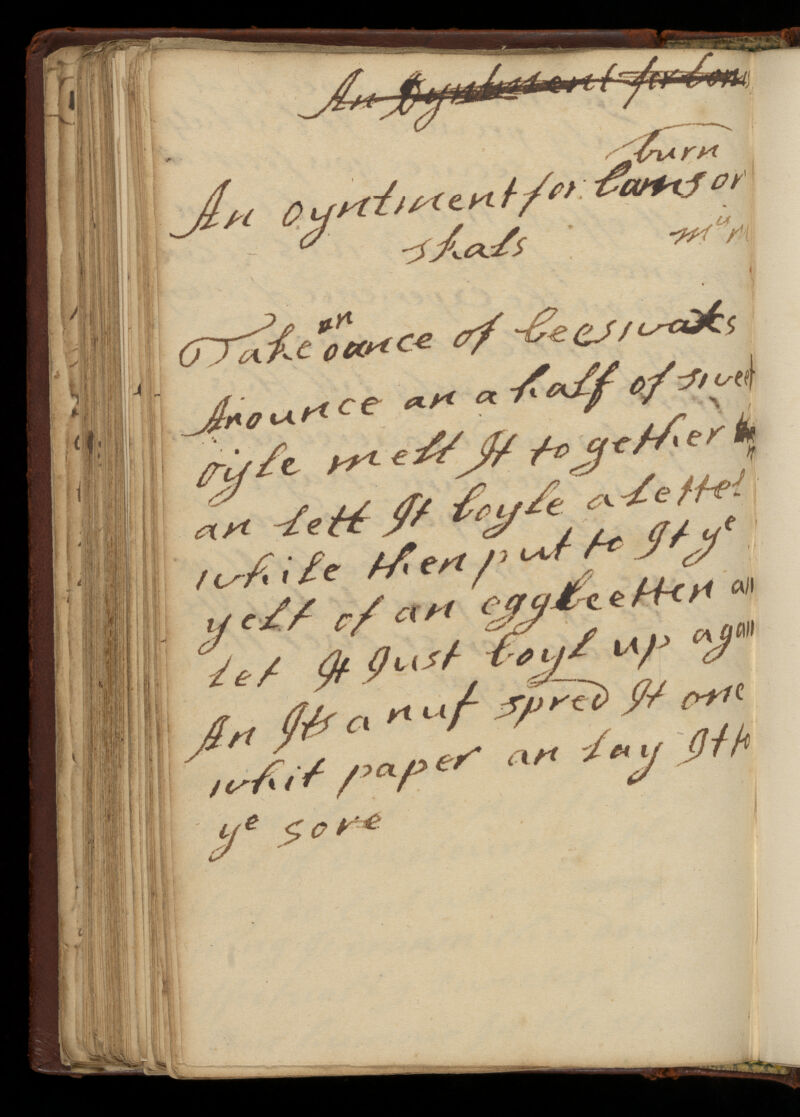 An Oyntment for
burn
An oyntment for bams or
skals
an
Take ounce of beeswaks
An ounce an a half of sweet
oyle melt It to gether
an lett It boyle a lettel
while then put to It ye
yelt of an egg beetten an
let It Just boyl up again
An Its a nuf spred It one
whit paper an lay It to
ye sore